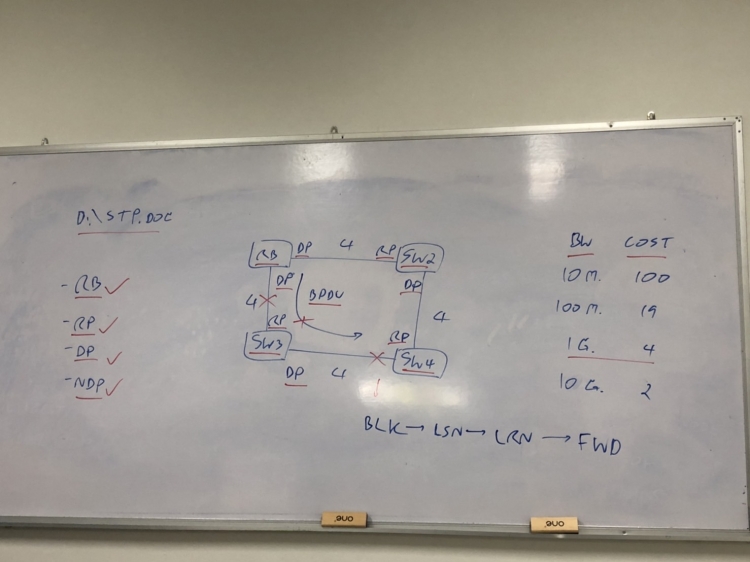 D:\STP.DOC
- RB ✓
- RP ✓
- DP ✓
- NDP ✓
RB DP 4 RP SW2
DP BPDU DP
4 4
RP RP
SW3 SW4
DP 4
BLK → LSN → LRN → FWD
BW COST
10 M. 100
100 M. 19
1 G. 4
10 G. 2
one.
one.